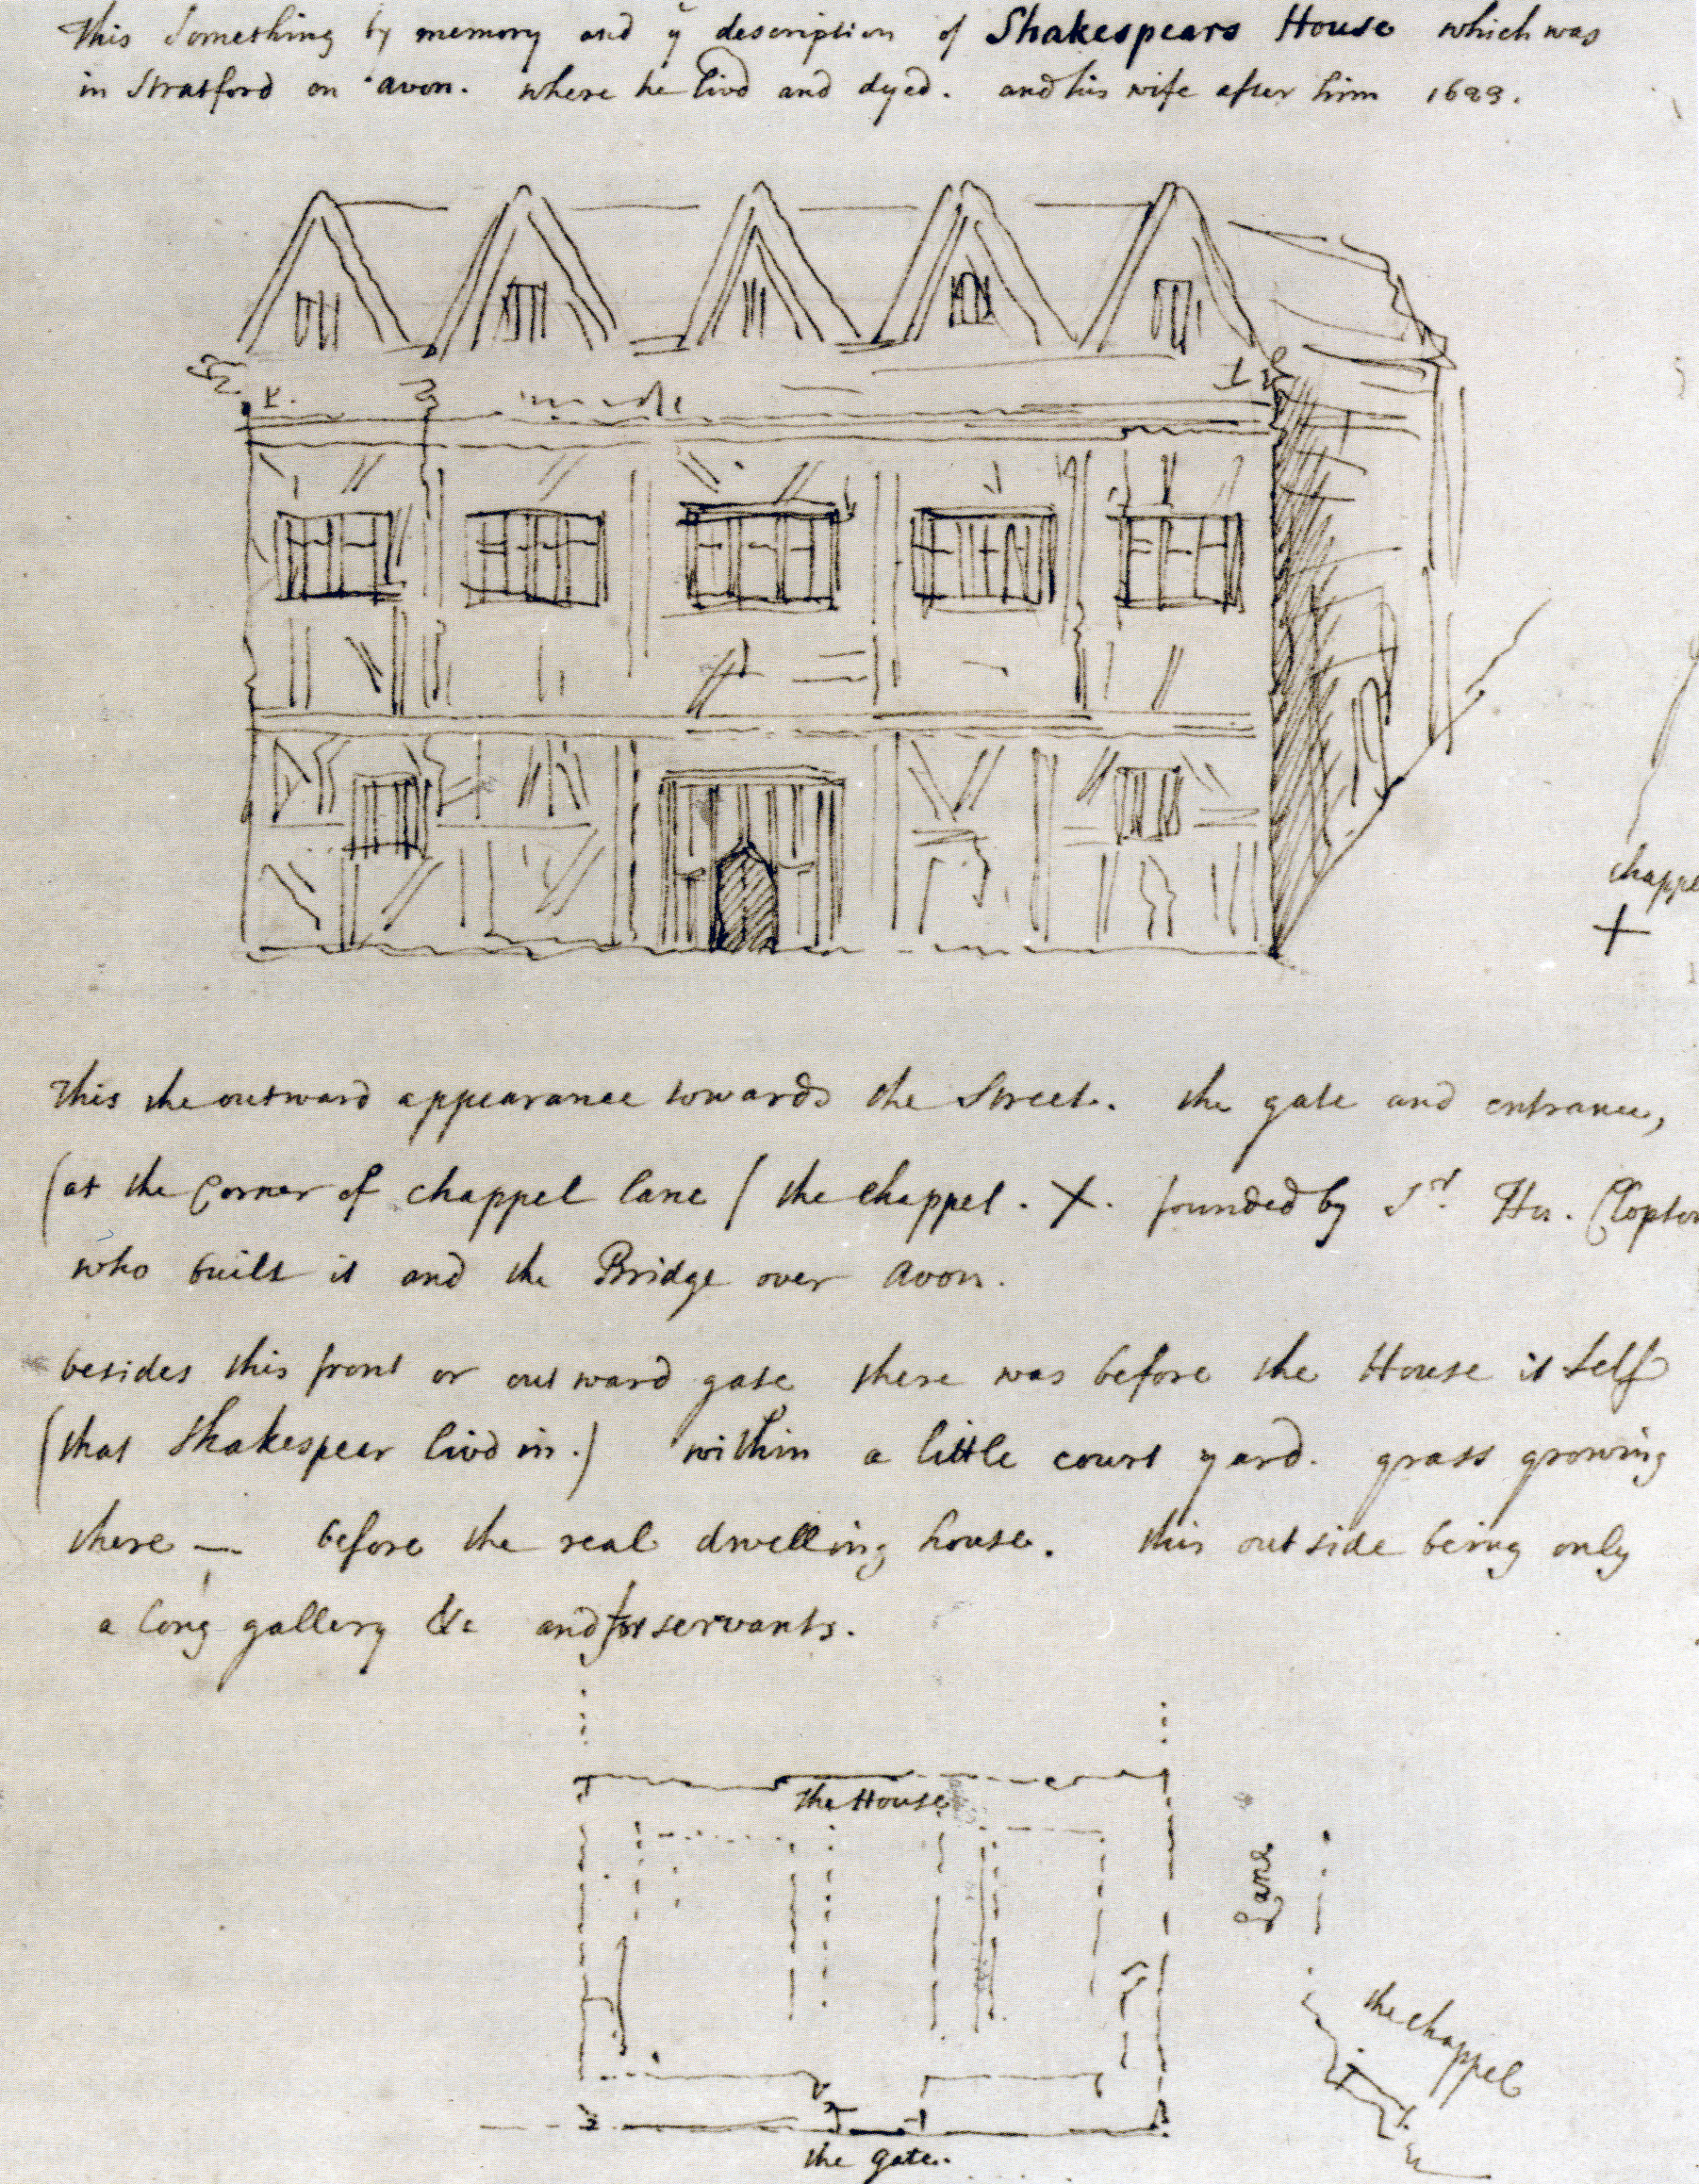 This Something by memory and ÿ description of Shakespears House which was
in Stratford on avon. where he livd and dyed. and his wife after him 1623.
chappel
+
This the outward appearance towards the Street. the gate and entrance,
(at the Corner of chappel lane / the chappel . X. founded by Sr. Hu. Clopton
who built it and the Bridge over Avon.
besides this front or outward gate there was before the House it self
(that Shakespear livd in.) within a little court yard. grass growing
there — before the real dwelling house. this outside being only
a long gallery &c and for servants.
the House
Lane
the chappel
the gate.